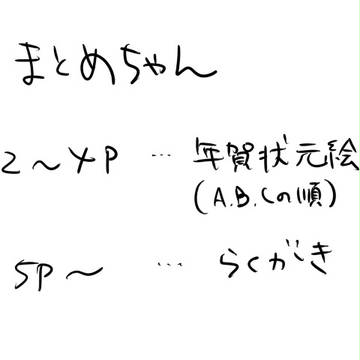 まとめちゃん
2～4P … 年賀状元絵
(A.B.Cの順)
5P～ … らくがき